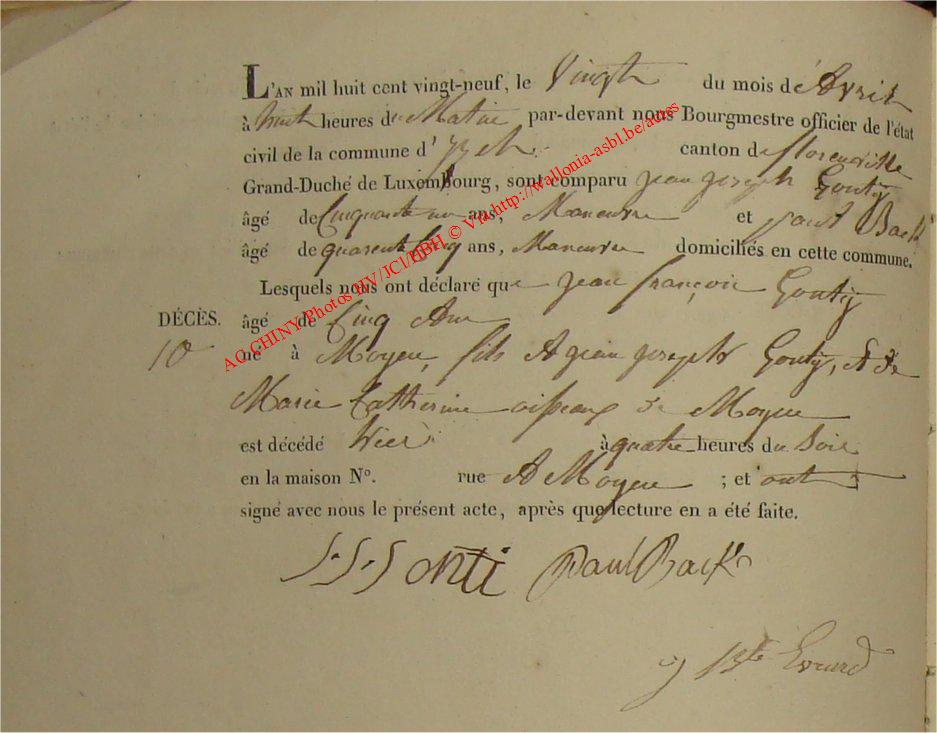 L'AN mil huit cent vingt-neuf, le Vingt du mois de Avril
à huit heures du Matin par-devant nous Bourgmestre officier de l'état
civil de la commune d'Izel canton de florenville
Grand-Duché de Luxembourg, sont comparu jean joseph Gouty
âgé de Cinquante un ans, Maneuvre et paul Back
âgé de quarente Cinq ans, Maneuvre domiciliés en cette commune.
Lesquels nous ont déclaré que jean françois Gouty
DÉCÈS. âgé de Cinq Ans
10 né à Moyen, fils de jean joseph Gouty, et de
Marie Catherine de Moyen
est décédé hier à quatre heures du Soir
en la maison N°. rue A Moyen ; et ont
signé avec nous le présent acte, après que lecture en a été faite.
J.J. Gonti Paul Back
j Bte Evrard
AG CHINY Photos HV/JCI/HBH © Via http://wallonia-asbl.be/actes